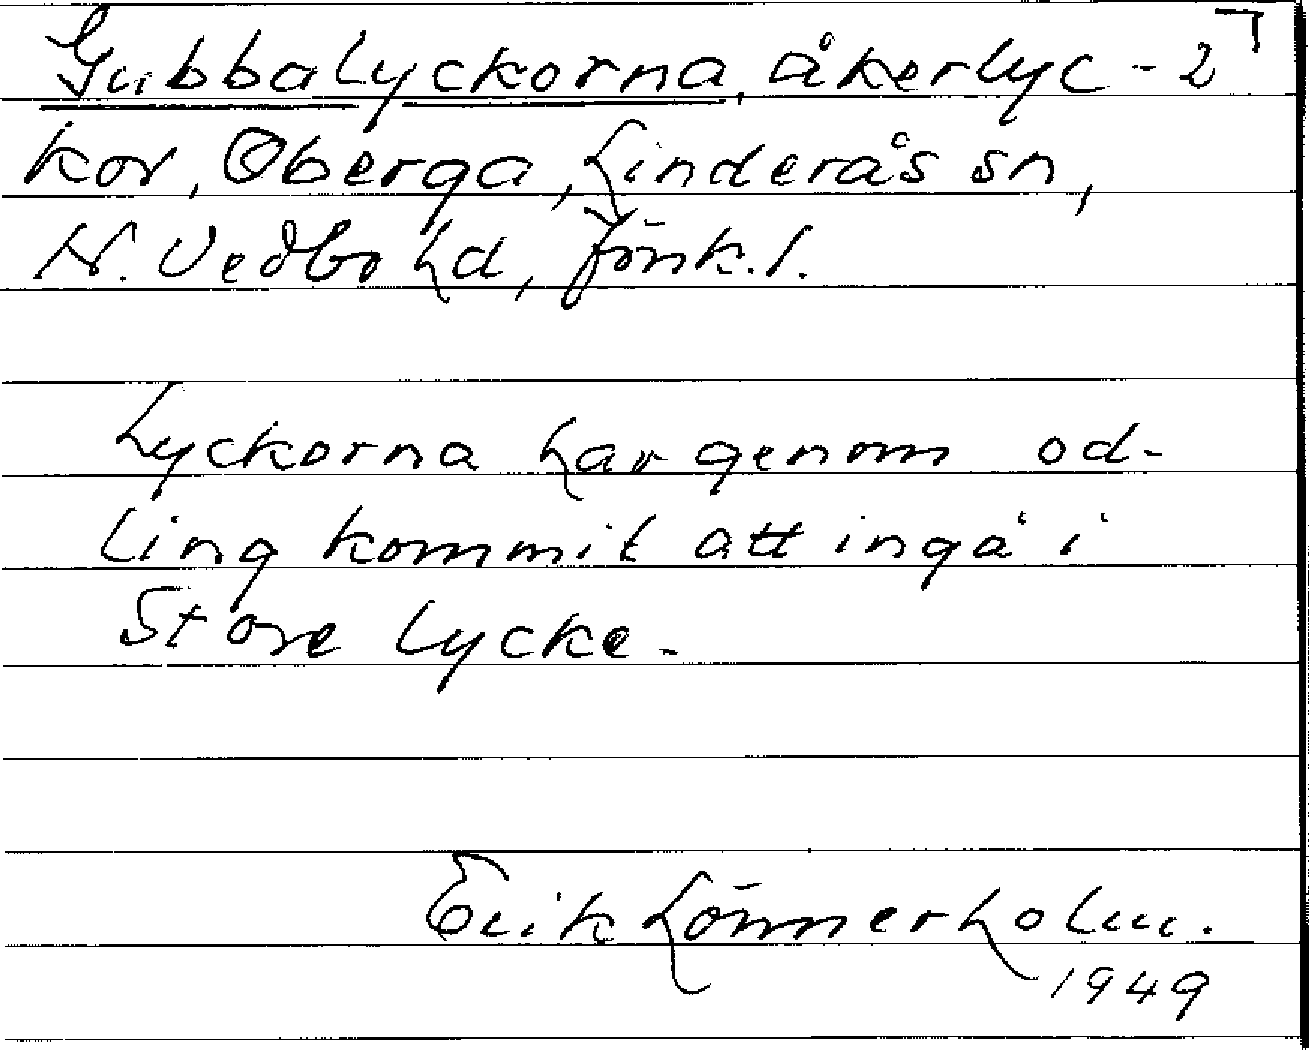 Gubbalyckorna, åkerlyc- 2
kor, Oberga, Linderås sn,
N. Vedbo hd, Jönk. l.
Lyckorna har genom od-
ling kommit att ingå i
Store lycke.
Erik Lönnerholm.
1949